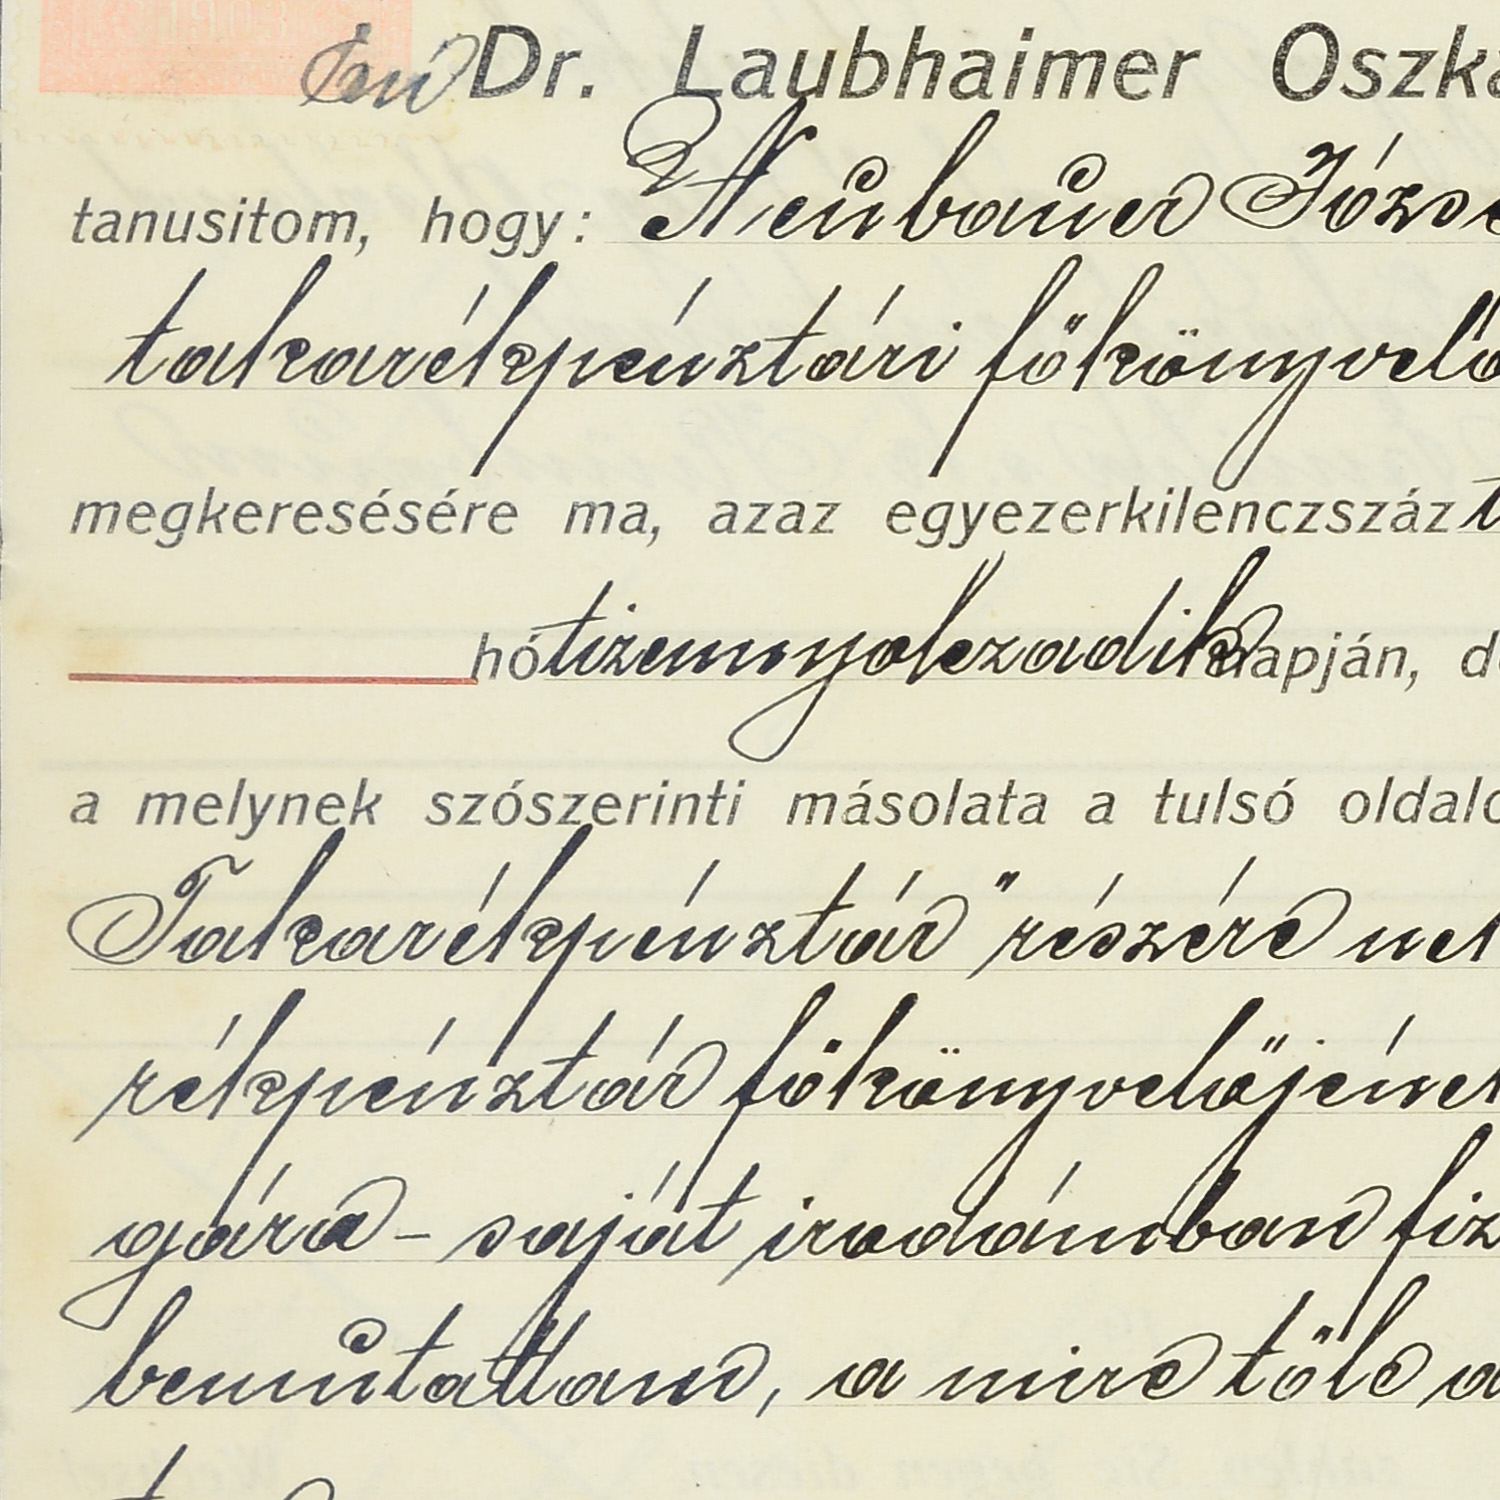 Én Dr. Laubhaimer Oszká
tanusitom, hogy: Neubauer Józse
takarékpénztári főkönyvelő
megkeresésére ma, azaz egyezerkilenczszáz t
hó tizennyolczadik napján, d
a melynek szószerinti másolata a tulsó oldalo
Takarékpénztár" részére nek
rékpénztár főkönyvelőjének
gára - saját irodámban fiz
bemutattam, a mire tőle a